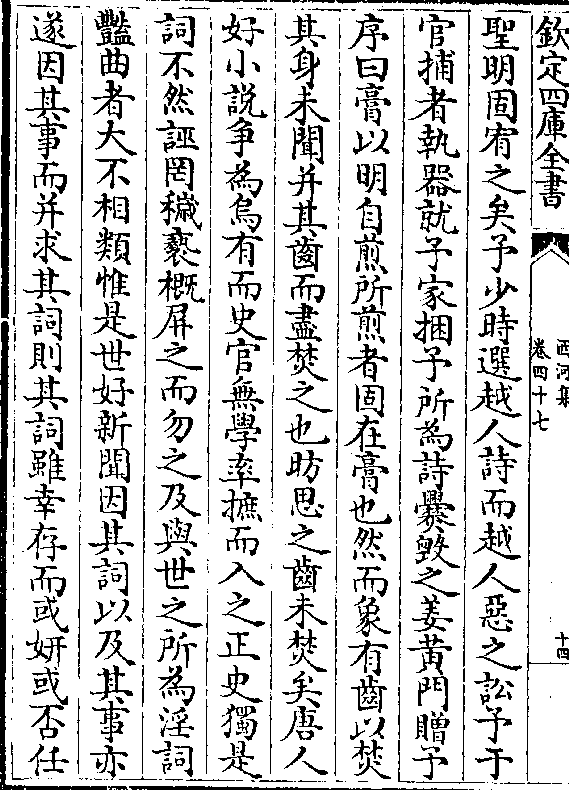 欽定四庫全書
西河集
卷四十七
十四
聖明固宥之矣予少時選越人詩而越人惡之訟予于
官捕者執器就予家捆予所為詩爨毀之姜黃門贈予
序曰膏以明自煎所煎者固在膏也然而象有齒以焚
其身未聞并其齒而盡焚之也昉思之齒未焚矣唐人
好小說爭為烏有而史官無學率摭而入之正史獨是
詞不然誣罔穢䙝概屏之而勿之及與世之所為淫詞
豔曲者大不相類惟是世好新聞因其詞以及其事亦
遂因其事而并求其詞則其詞雖幸存而或妍或否任